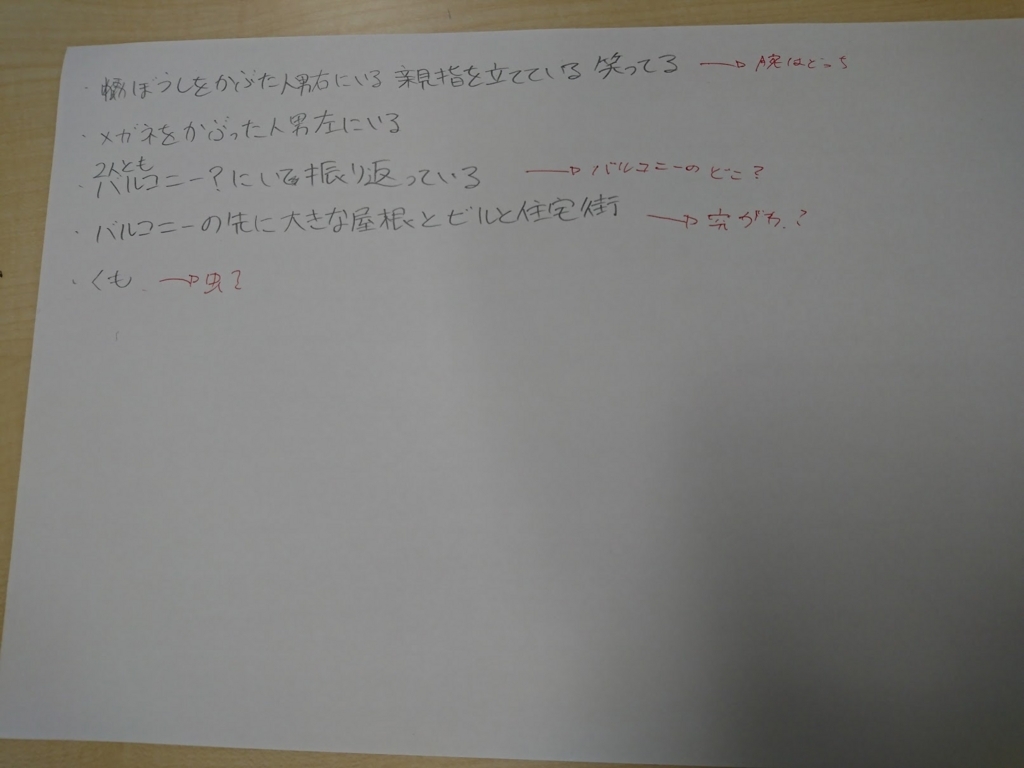 ・ ぼうしをかぶた人男右にいる 親指を立てている 笑ってる → はどっち
・メガネをかぶった人男左にいる
2人とも
・バルコニー?にいて振り返っている → バルコニーのどこ?
・バルコニーの先に大きな屋根とビルと住宅街 → ?
・くも → 虫?